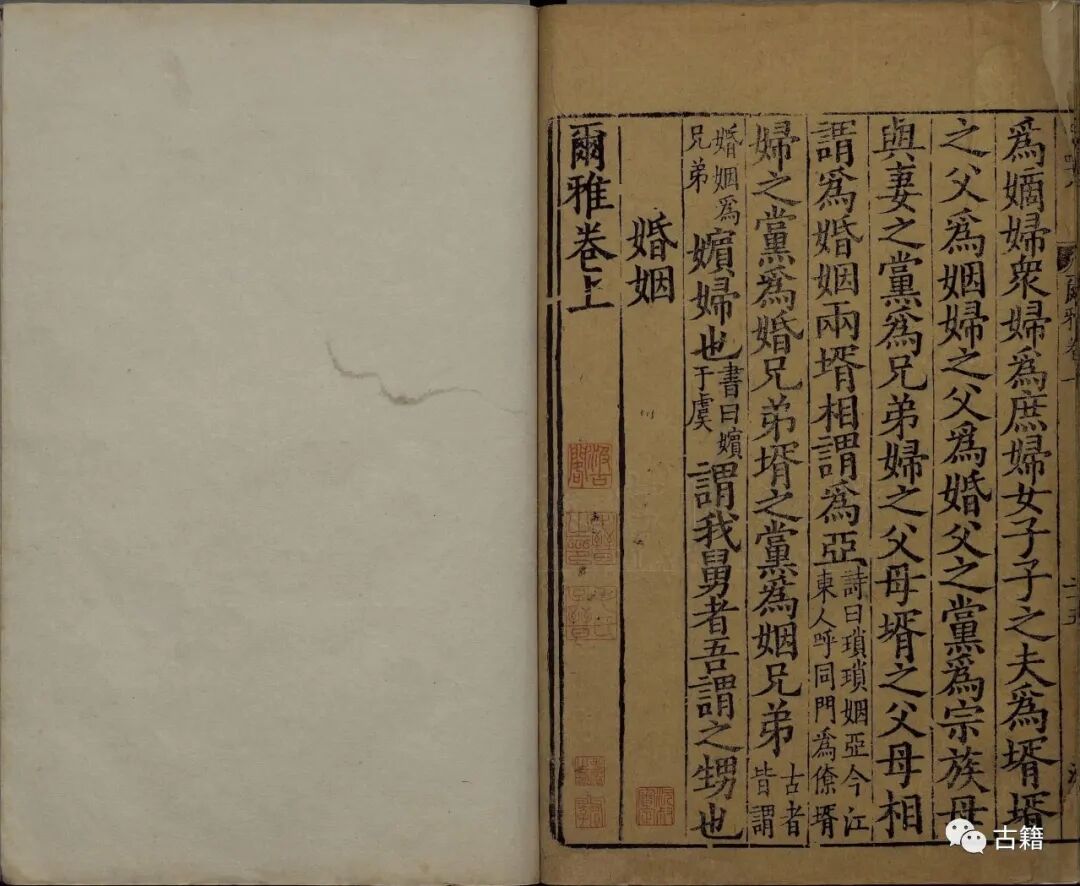 為嫡婦衆婦為庶婦女子子之夫為壻壻
之父為姻婦之父為婚父之黨為宗族母
與妻之黨為兄弟婦之父母壻之父母相
謂為婚姻兩壻相謂為亞詩曰瑣瑣姻亞今江東人呼同門為僚壻
婦之黨為婚兄弟壻之黨為姻兄弟古者皆謂
婚姻為兄弟嬪婦也書曰嬪于虞謂我舅者吾謂之甥也
婚姻
爾雅卷上
古籍